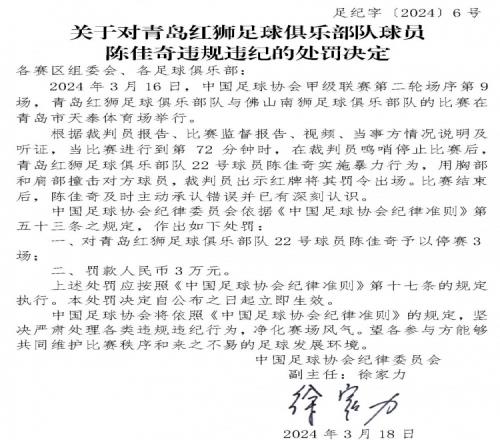 足纪字〔2024〕6号
关于对青岛红狮足球俱乐部队球员
陈佳奇违规违纪的处罚决定
各赛区组委会、各足球俱乐部：
2024年3月16日，中国足球协会甲级联赛第二轮场序第9
场，青岛红狮足球俱乐部队与佛山南狮足球俱乐部队的比赛在
青岛市天泰体育场举行。
根据裁判员报告、比赛监督报告、视频、当事方情况说明及
听证，当比赛进行到第72分钟时，在裁判员鸣哨停止比赛后，
青岛红狮足球俱乐部队22号球员陈佳奇实施暴力行为，用胸部
和肩部撞击对方球员，裁判员出示红牌将其罚令出场。比赛结束
后，陈佳奇及时主动承认错误并已有深刻认识。
中国足球协会纪律委员会依据《中国足球协会纪律准则》第
五十三条之规定，作出如下处罚：
一、对青岛红狮足球俱乐部队22号球员陈佳奇予以停赛3
场；
二、罚款人民币3万元。
上述处罚应按照《中国足球协会纪律准则》第十七条的规定
执行。本处罚决定自公布之日起立即生效。
中国足球协会将依照《中国足球协会纪律准则》的规定，坚
决严肃处理各类违规违纪行为，净化赛场风气。望各参与方能够
共同维护比赛秩序和来之不易的足球发展环境。
中国足球协会纪律委员会
副主任：徐家力
徐家力
2024年3月18日